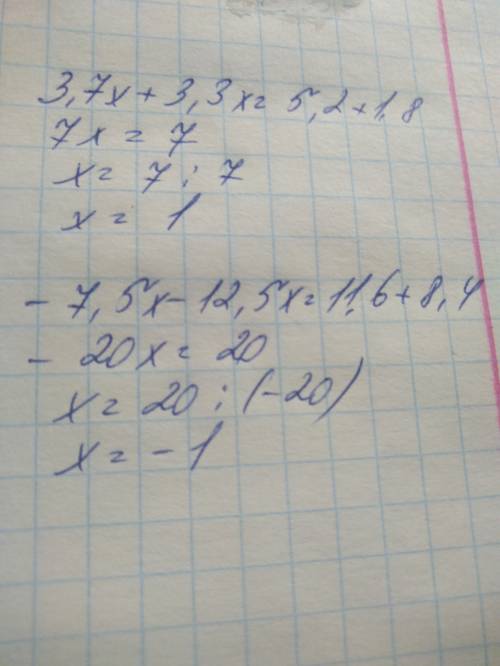 3,7x + 3,3x = 5,2 + 1,8
7x = 7
x = 7 : 7
x = 1
- 7,5x - 12,5x = 11,6 + 8,4
- 20x = 20
x = 20 : (-20)
x = - 1